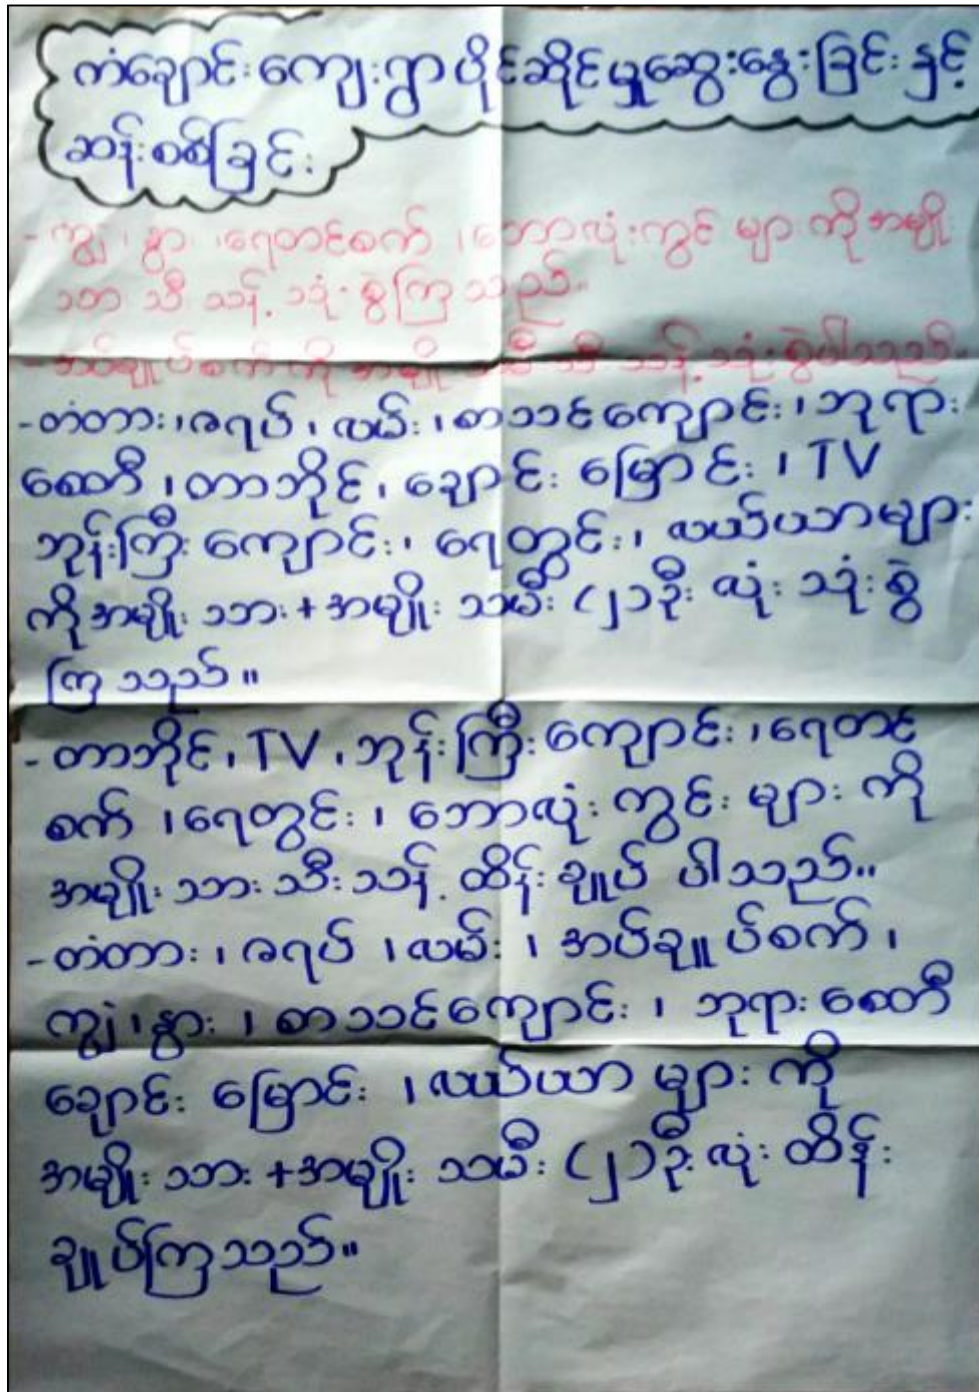 ကံချောင်းကျေးရွာ ပိုင်ဆိုင်မှုဆွေးနွေးခြင်းနှင့်
ဆန်းစစ်ခြင်း
- ကျွဲ၊ နွား၊ ရေတင်စက်၊ ဘောလုံးကွင်း များ ကို အမျိုး
သား သီး သန့် သုံး စွဲကြ သည်။
- အပ်ချုပ်စက် ကို အမျိုး သမီး သီး သန့် သုံး စွဲပါသည်။
- တံတား၊ ဇရပ်၊ လမ်း၊ စာသင်ကျောင်း၊ ဘုရား
စေတီ၊ တာဘိုင်၊ ချောင်း မြောင်း၊ TV
ဘုန်းကြီး ကျောင်း၊ ရေတွင်း၊ လယ်ယာများ
ကို အမျိုး သား + အမျိုး သမီး (၂)ဦး လုံး သုံး စွဲ
ကြ သည်။
- တာဘိုင်၊ TV၊ ဘုန်းကြီးကျောင်း၊ ရေတင်
စက်၊ ရေတွင်း၊ ဘောလုံး ကွင်း များ ကို
အမျိုး သား သီး သန့် ထိန်း ချုပ် ပါသည်။
- တံတား၊ ဇရပ်၊ လမ်း၊ အပ်ချုပ်စက်၊
ကျွဲ၊ နွား၊ စာသင်ကျောင်း၊ ဘုရား စေတီ
ချောင်း မြောင်း၊ လယ်ယာ များ ကို
အမျိုး သား + အမျိုး သမီး (၂)ဦး လုံး ထိန်း
ချုပ်ကြ သည်။